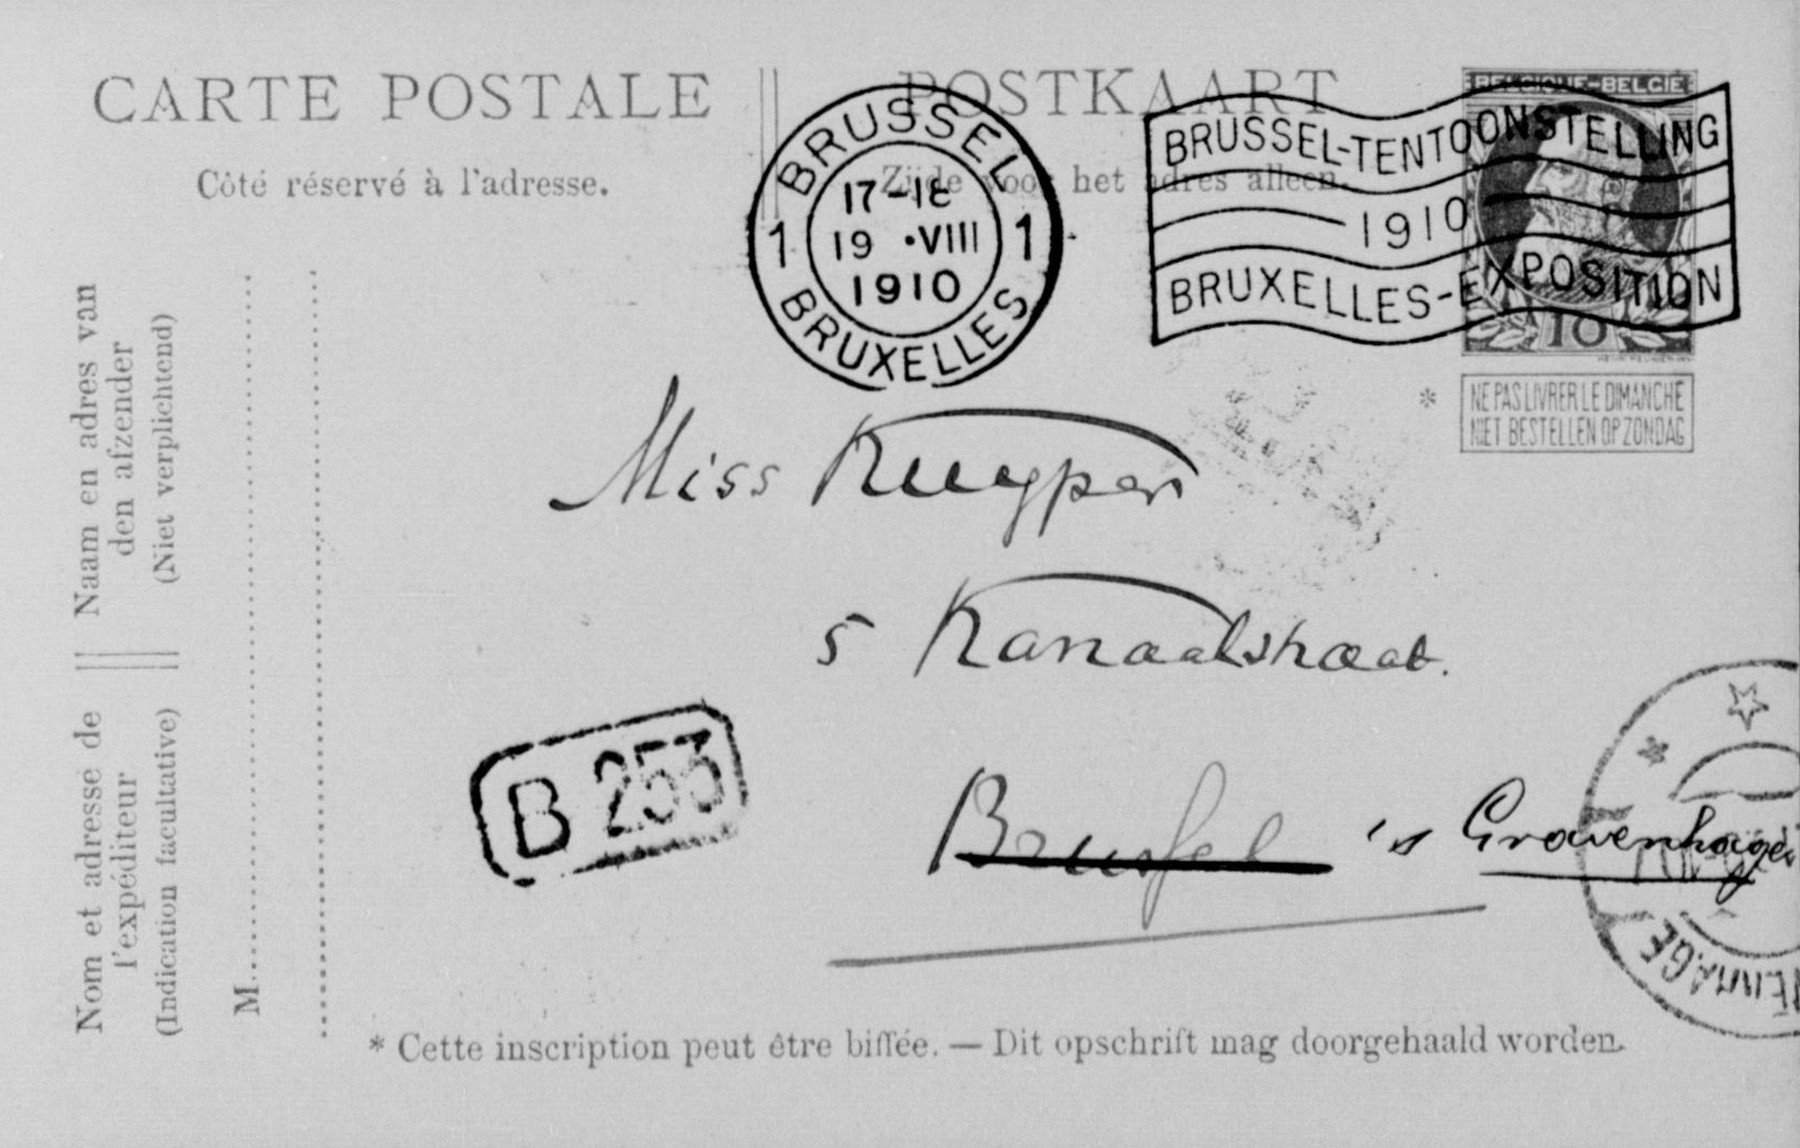 CARTE POSTALE
POSTKAART
Côté réservé à l'adresse.
Zijde voor het adres alleen.
BRUSSEL
17-18
19 •VIII
1910
1 1
BRUXELLES
BELGIQUE-BELGIË
BRUSSEL-TENTOONSTELLING
1910
BRUXELLES-EXPOSITION
10
NE PAS LIVRER LE DIMANCHE
* NIET BESTELLEN OP ZONDAG
Naam en adres van
den afzender
(Niet verplichtend)
Nom et adresse de
l'expéditeur
(Indication facultative)
M
Miss Kuyper
5 Kanaalstraat.
B 253
Brussel 's Gravenhage
* Cette inscription peut être biffée. — Dit opschrift mag doorgehaald worden.